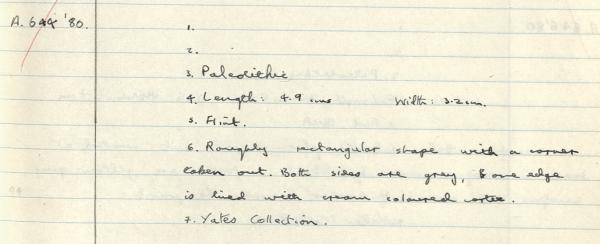 A. 644 '80.
1.
2.
3. Paleolithic
4. Length: 4.9 cms Width: 3.2cm.
5. Flint.
6. Roughly rectangular shape with a corner
taken out. Both sides are grey, & one edge
is lined with cream coloured cortex.
7. Yates Collection.